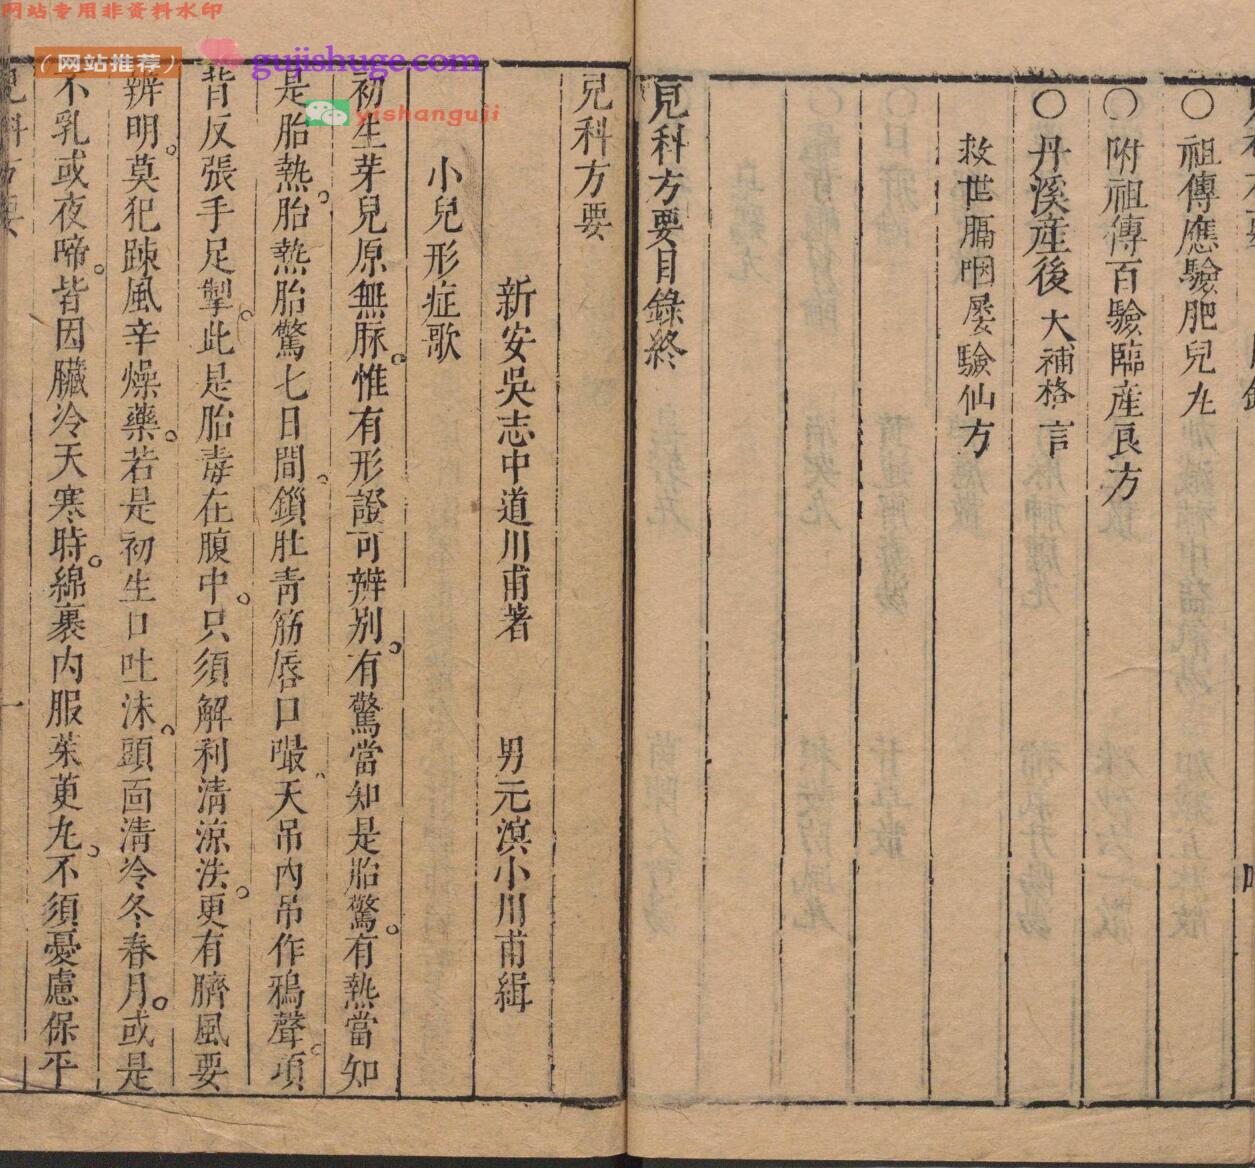 网站专用非资料水印
（网站推荐）
gujishuge.com
yishanguji
○祖傳應驗肥兒丸
○附祖傳百驗臨產良方
○丹溪產後大補格言
救世膈咽屢驗仙方
兒科方要目錄終
兒科方要
新安吳志中道川甫著　男元溟小川甫緝
小兒形症歌
初生芽兒原無脉。惟有形證可辨別。有驚當知是胎驚。有熱當知
是胎熱。胎熱胎驚七日間。鎖肚青筋唇口嘬。天吊內吊作鴉聲。項
背反張手足掣。此是胎毒在腹中。只須解利清涼法。更有臍風要
辨明。莫犯踈風辛燥藥。若是初生口吐沫。頭面清冷冬春月。或是
不乳或夜啼。皆因臟冷天寒時。綿裹內服茱萸丸。不須憂慮保平
兒科方要
一